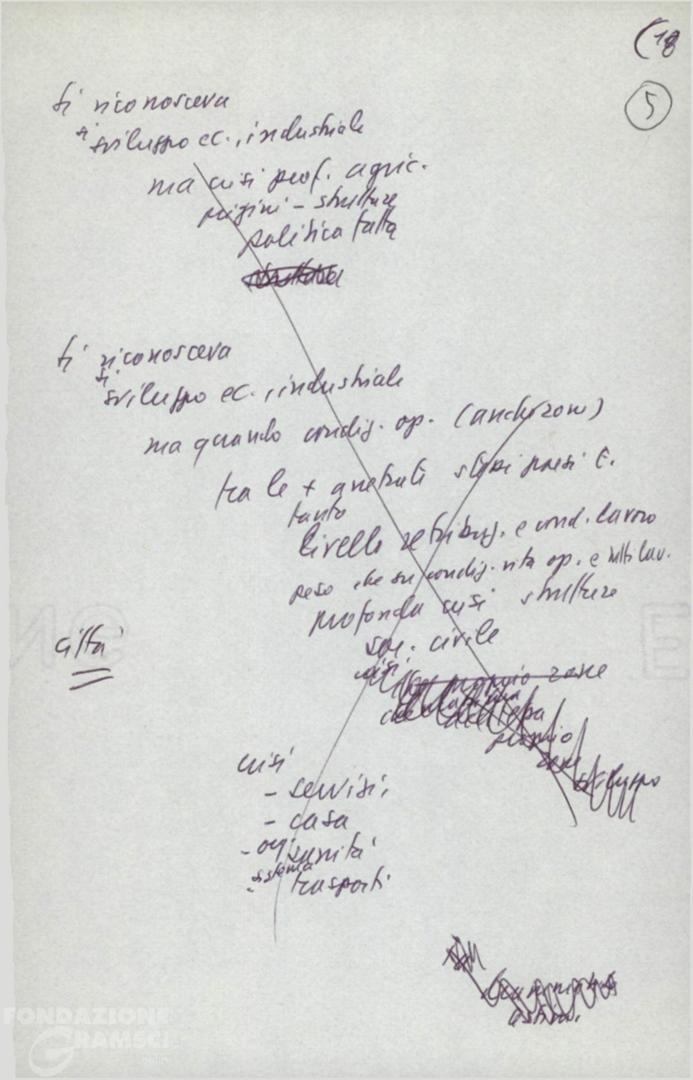 (18
5
si riconosceva
si
sviluppo ec., industriale
ma crisi prof. agric.
origini - strutture
politica fatta
si riconosceva
si
sviluppo ec., industriale
ma quando condiz. op. (anch'essi)
tra le + arretrate stessi paesi C.
tanto
livello retribuz. e cond. lavoro
peso che su condiz. vita op. e tutti lav.
profonda crisi strutture
soc. civile
città
crisi
proprio zone
proprio
zone
sviluppo
crisi
- servizi,
- casa
- org. sanità
- sistema
trasporti
FONDAZIONE
GRAMSCI